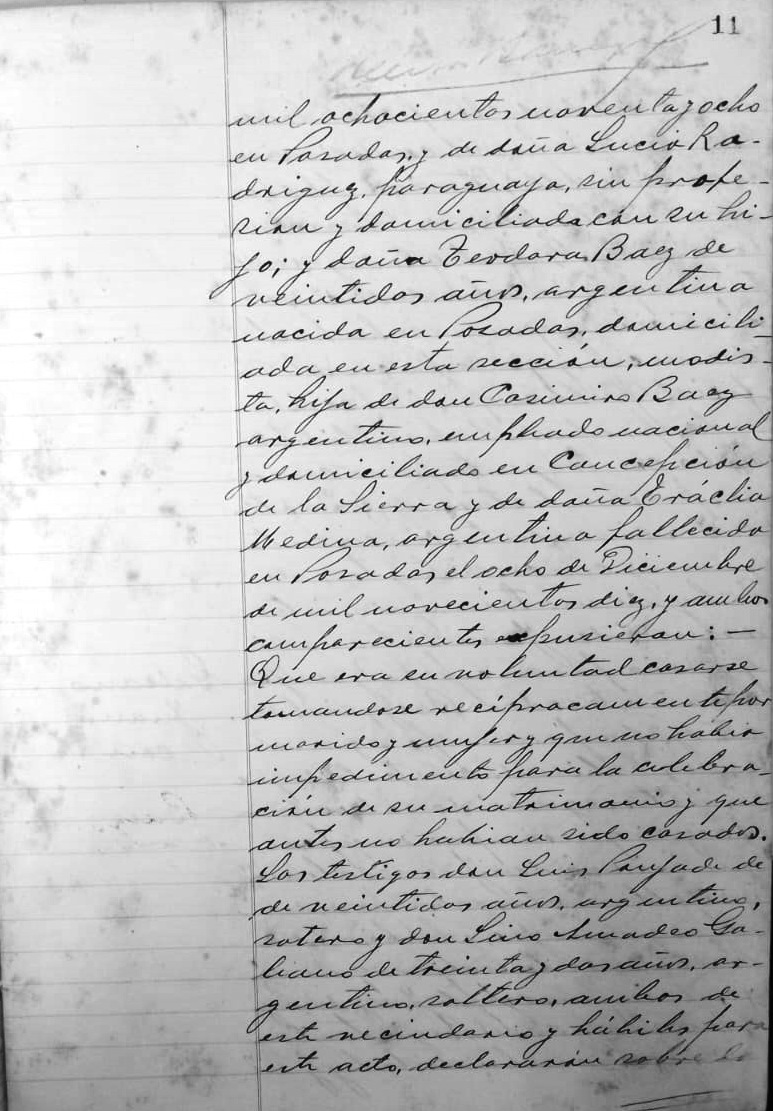 11
mil ochocientos noventa y ocho
en Posadas, y de doña Lucia Ro-
driguez, paraguaya, sin profe-
sion y domiciliada con su hi-
jo; y doña Teodora Baez de
veintidos años, argentina
nacida en Posadas, domicili-
ada en esta sección, modis-
ta, hija de don Casimiro Baez
argentino, empleado nacional
y domiciliado en Concepción
de la Sierra y de doña
Medina, argentina fallecida
en Posadas el ocho de Diciembre
de mil novecientos diez, y ambos
comparecientes expusieron: —
Que era su voluntad casarse
tomandose recíprocamente por
marido y mujer y que no habia
impedimento para la celebra-
ción de su matrimonio y que
antes no habian sido casados.
Los testigos don Luis de
de veintidos años, argentino,
soltero y don Lino Amadeo Ga-
liano de treinta y dos años, ar-
gentino, soltero, ambos de
este vecindario y hábiles para
este acto, declararán sobre la